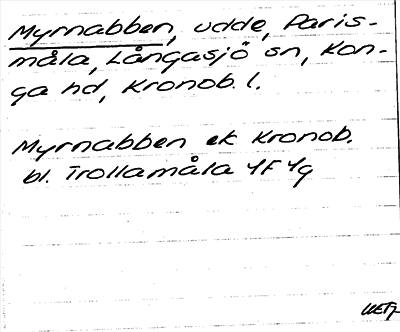 Myrnabben, udde, Paris-
måla, Långasjö sn, Kon-
ga hd, Kronob. l.
Myrnabben ek Kronob.
bl. Trollamåla 4F4g